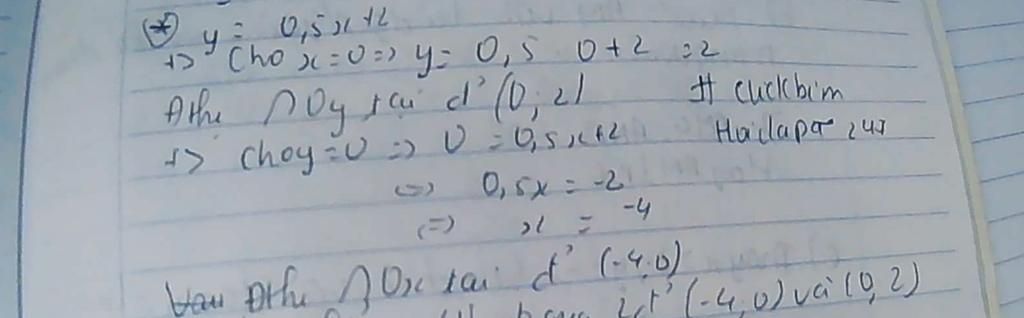 (*) y = 0,5x+2
+> Cho x=0=> y= 0,5 0+2 =2
Đthị ∩Oy tại đ' (0; 2) # cuckbim
+> Cho y=0 => 0 =0,5x+2 Hoidap 247
<=> 0,5x = -2
<=> x = -4
Đthị ∩Ox tại đ' (-4,0)
2 đ' (-4,0) và (0,2)